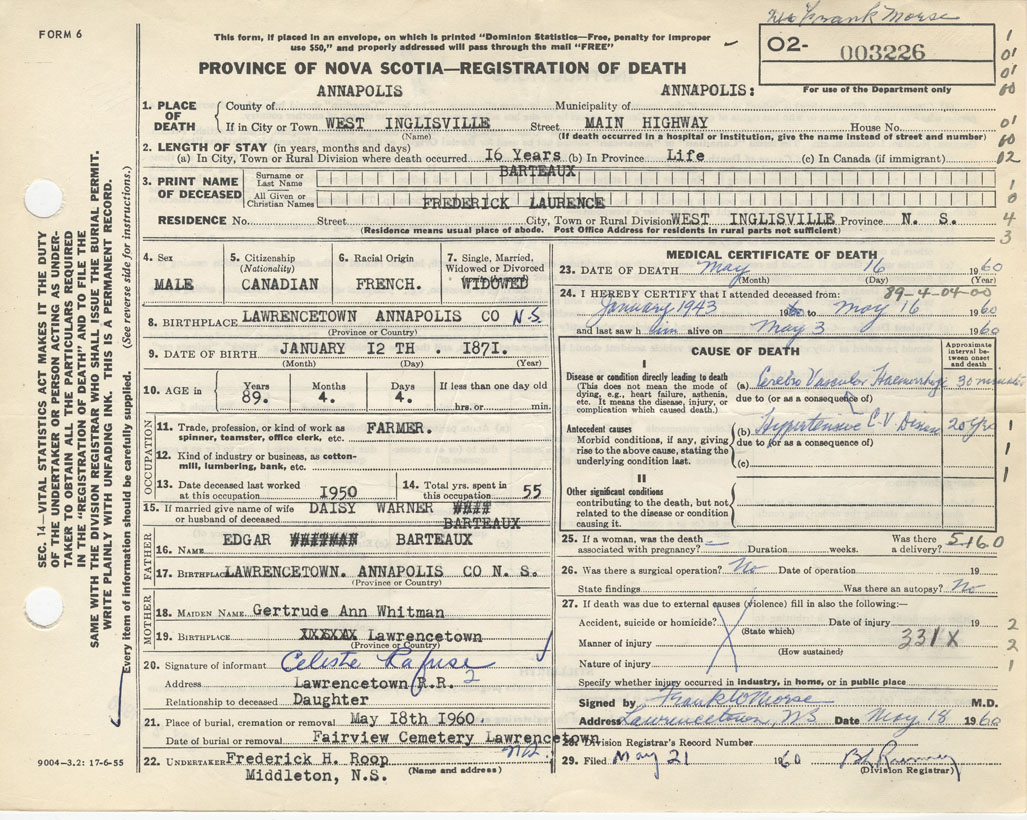 FORM 6
This form, if placed in an envelope, on which is printed "Dominion Statistics—Free, penalty for improper
use $50," and properly addressed will pass through the mail "FREE"
Frank Morse
O2- 003226
For use of the Department only
PROVINCE OF NOVA SCOTIA—REGISTRATION OF DEATH
1. PLACE OF DEATH
County of ANNAPOLIS Municipality of ANNAPOLIS:
If in City or Town WEST INGLISVILLE Street MAIN HIGHWAY House No.
(Name) (If death occurred in a hospital or institution, give the name instead of street and number)
2. LENGTH OF STAY (in years, months and days)
(a) In City, Town or Rural Division where death occurred 16 Years (b) In Province Life (c) In Canada (if immigrant)
3. PRINT NAME OF DECEASED
Surname or Last Name BARTEAUX
All Given or Christian Names FREDERICK LAURENCE
RESIDENCE No. Street City, Town or Rural Division WEST INGLISVILLE Province N. S.
(Residence means usual place of abode. Post Office Address for residents in rural parts not sufficient)
1
01
01
00
01
00
02
1
0
4
3
SEC. 14—VITAL STATISTICS ACT MAKES IT THE DUTY
OF THE UNDERTAKER OR PERSON ACTING AS UNDER-
TAKER TO OBTAIN ALL THE PARTICULARS REQUIRED
IN THE "REGISTRATION OF DEATH" AND TO FILE THE
SAME WITH THE DIVISION REGISTRAR WHO SHALL ISSUE THE BURIAL PERMIT.
WRITE PLAINLY WITH UNFADING INK. THIS IS A PERMANENT RECORD.
Every item of information should be carefully supplied. (See reverse side for instructions.)
4. Sex
MALE
5. Citizenship
(Nationality)
CANADIAN
6. Racial Origin
FRENCH.
7. Single, Married,
Widowed or Divorced
WIDOWED
8. BIRTHPLACE LAWRENCETOWN ANNAPOLIS CO N.S
(Province or Country)
9. DATE OF BIRTH JANUARY 12 TH . 1871.
(Month) (Day) (Year)
10. AGE in
Years Months Days If less than one day old
89. 4. 4. hrs. or min.
OCCUPATION
11. Trade, profession, or kind of work as FARMER.
spinner, teamster, office clerk, etc.
12. Kind of industry or business, as cotton-
mill, lumbering, bank, etc.
13. Date deceased last worked
at this occupation 1950
14. Total yrs. spent in
this occupation 55
15. If married give name of wife
or husband of deceased DAISY WARNER
BARTEAUX
FATHER
16. Name EDGAR WHITMAN BARTEAUX
17. Birthplace LAWRENCETOWN. ANNAPOLIS CO N. S.
(Province or Country)
MOTHER
18. Maiden Name Gertrude Ann Whitman
19. Birthplace XXXXXX Lawrencetown
(Province or Country)
20. Signature of informant Celeste Rafuse
Address Lawrencetown R.R. 2
Relationship to deceased Daughter
21. Place of burial, cremation or removal May 18th 1960.
Date of burial or removal Fairview Cemetery Lawrencetown
N.S.
22. Undertaker Frederick H. Roop
Middleton, N.S. (Name and address)
9004—3.2: 17-6-55
MEDICAL CERTIFICATE OF DEATH
23. DATE OF DEATH May 16 1960
(Month) (Day) (Year)
89-4-04-00
24. I HEREBY CERTIFY that I attended deceased from:
January 1943 to May 16 1960
and last saw him alive on May 3 1960
CAUSE OF DEATH
Approximate interval between onset and death
I
Disease or condition directly leading to death
(This does not mean the mode of
dying, e.g., heart failure, asthenia,
etc. It means the disease, injury, or
complication which caused death.)
(a) Cerebro Vascular Haemorrhage 30 minutes
due to (or as a consequence of)
Antecedent causes
Morbid conditions, if any, giving
rise to the above cause, stating the
underlying condition last.
(b) Hypertensive C.V. Disease 20 yrs
due to (or as a consequence of)
(c)
1
1
1
II
Other significant conditions
contributing to the death, but not
related to the disease or condition
causing it.
25. If a woman, was the death
associated with pregnancy? — Duration weeks. Was there a delivery?
5160
26. Was there a surgical operation? No Date of operation 19
State findings Was there an autopsy? No
27. If death was due to external causes (violence) fill in also the following:—
Accident, suicide or homicide? Date of injury 19
(State which)
Manner of injury 331X
(How sustained)
Nature of injury
2
2
1
Specify whether injury occurred in industry, in home, or in public place
Signed by Frank W Morse M.D.
Address Lawrencetown, NS Date May 18 1960
28. Division Registrar's Record Number
29. Filed May 21 1960
(Division Registrar)